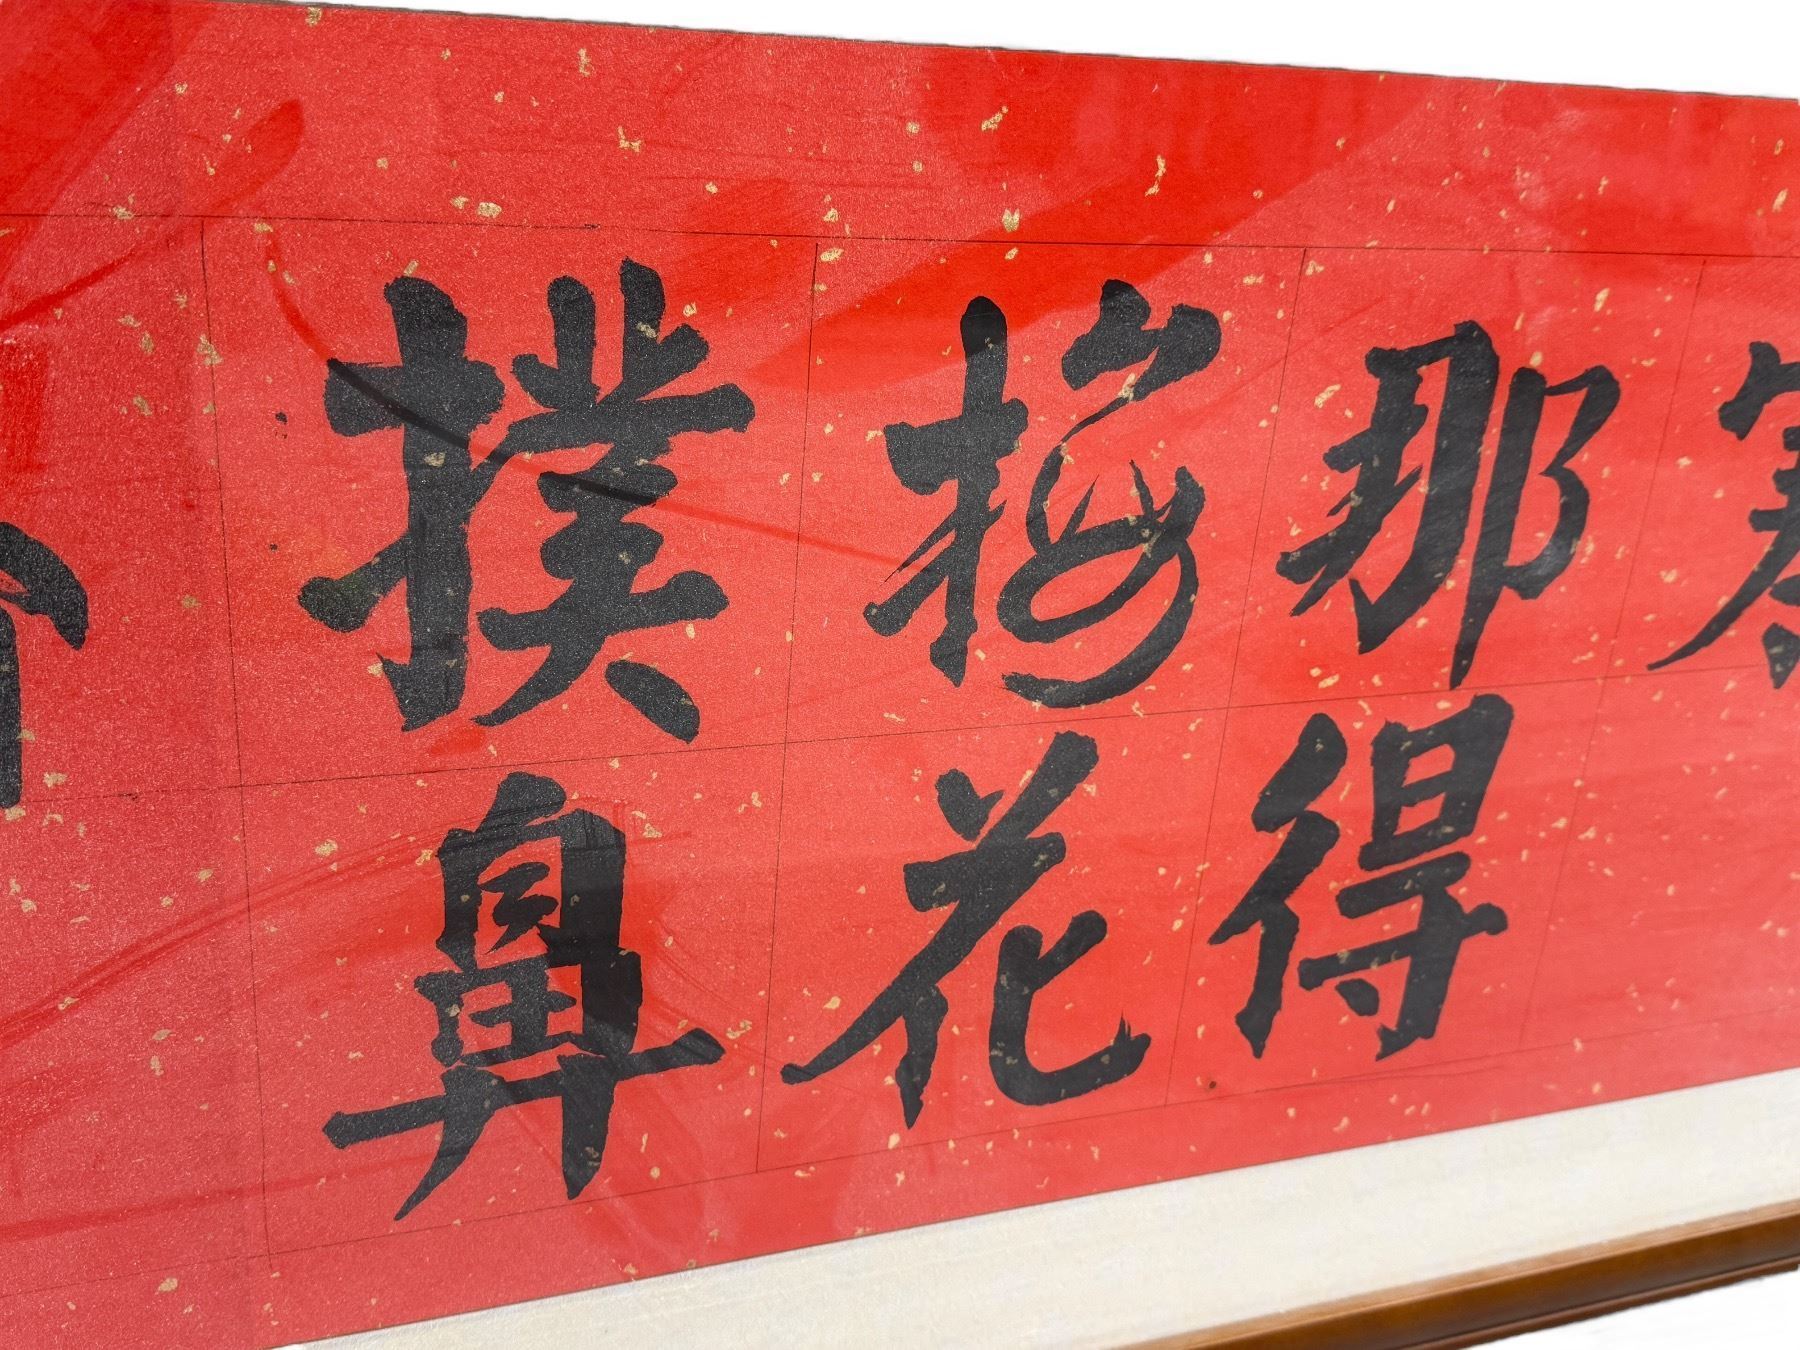 那得
梅花
撲鼻